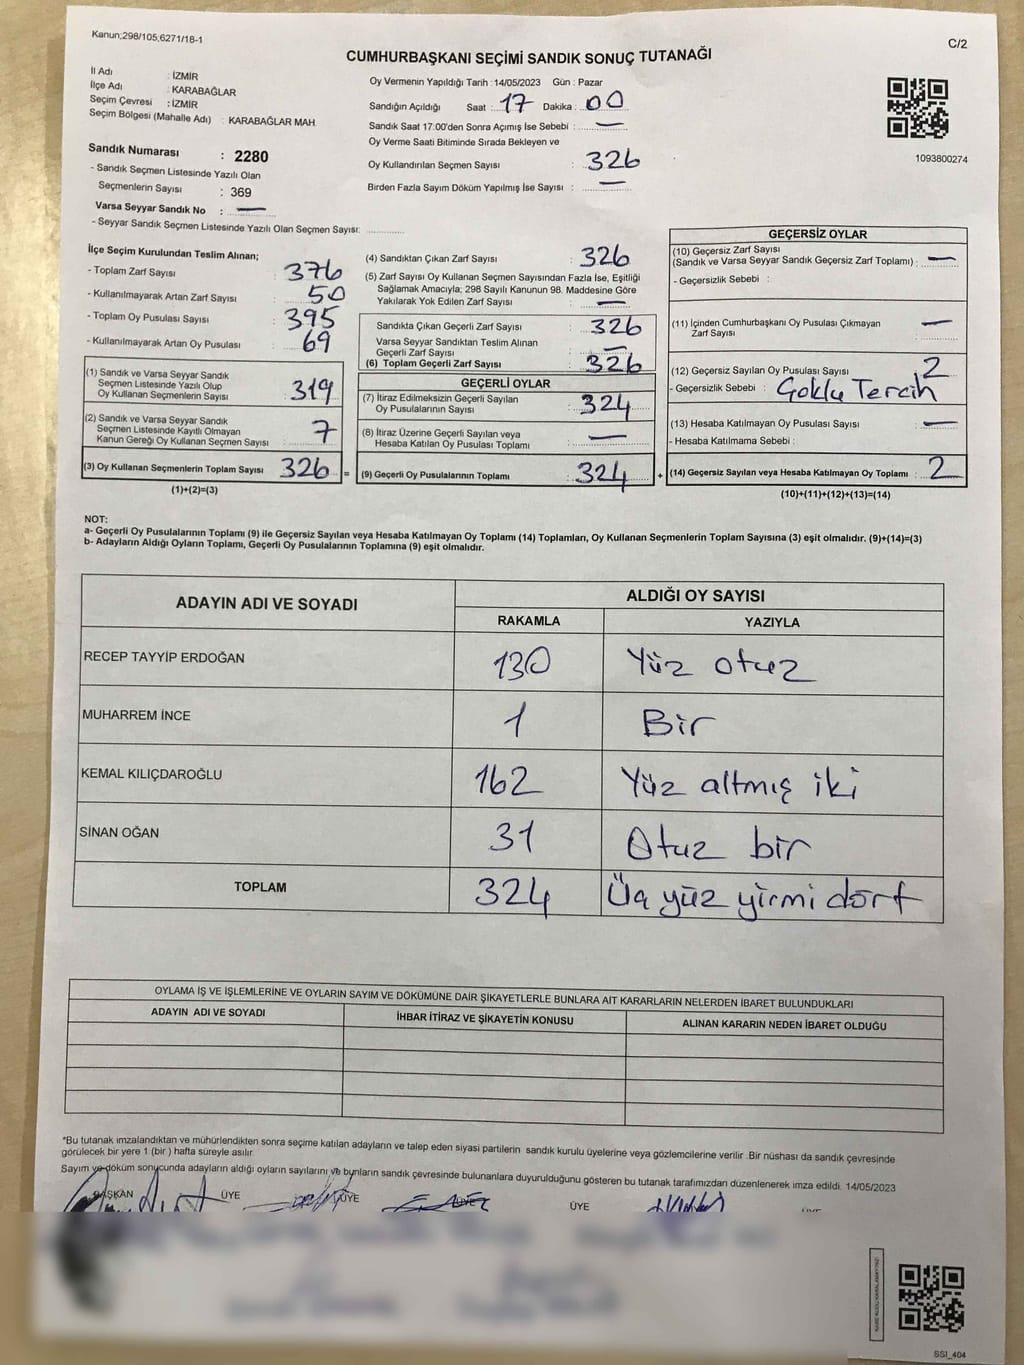 Kanun;298/105;6271/18-1
C/2
CUMHURBAŞKANI SEÇİMİ SANDIK SONUÇ TUTANAĞI
İl Adı : İZMİR
İlçe Adı : KARABAĞLAR
Seçim Çevresi : İZMİR
Seçim Bölgesi (Mahalle Adı) : KARABAĞLAR MAH.
Oy Vermenin Yapıldığı Tarih : 14/05/2023 Gün : Pazar
Sandığın Açıldığı Saat : 17 Dakika : 00
Sandık Saat 17:00'den Sonra Açımış İse Sebebi : —
Oy Verme Saati Bitiminde Sırada Bekleyen ve
Oy Kullandırılan Seçmen Sayısı : 326
Birden Fazla Sayım Döküm Yapılmış İse Sayısı : —
1093800274
Sandık Numarası : 2280
- Sandık Seçmen Listesinde Yazılı Olan
Seçmenlerin Sayısı : 369
Varsa Seyyar Sandık No : —
- Seyyar Sandık Seçmen Listesinde Yazılı Olan Seçmen Sayısı:
İlçe Seçim Kurulundan Teslim Alınan;
- Toplam Zarf Sayısı : 376
- Kullanılmayarak Artan Zarf Sayısı : 50
- Toplam Oy Pusulası Sayısı : 395
- Kullanılmayarak Artan Oy Pusulası : 69
(1) Sandık ve Varsa Seyyar Sandık
Seçmen Listesinde Yazılı Olup
Oy Kullanan Seçmenlerin Sayısı : 319
(2) Sandık ve Varsa Seyyar Sandık
Seçmen Listesinde Kayıtlı Olmayan
Kanun Gereği Oy Kullanan Seçmen Sayısı : 7
(3) Oy Kullanan Seçmenlerin Toplam Sayısı : 326 =
(1)+(2)=(3)
(4) Sandıktan Çıkan Zarf Sayısı : 326
(5) Zarf Sayısı Oy Kullanan Seçmen Sayısından Fazla İse, Eşitliği
Sağlamak Amacıyla; 298 Sayılı Kanunun 98. Maddesine Göre
Yakılarak Yok Edilen Zarf Sayısı : —
Sandıkta Çıkan Geçerli Zarf Sayısı : 326
Varsa Seyyar Sandıktan Teslim Alınan
Geçerli Zarf Sayısı : —
(6) Toplam Geçerli Zarf Sayısı : 326
GEÇERLİ OYLAR
(7) İtiraz Edilmeksizin Geçerli Sayılan
Oy Pusulalarının Sayısı : 324
(8) İtiraz Üzerine Geçerli Sayılan veya
Hesaba Katılan Oy Pusulası Toplamı : —
(9) Geçerli Oy Pusulalarının Toplamı : 324 +
GEÇERSİZ OYLAR
(10) Geçersiz Zarf Sayısı
(Sandık ve Varsa Seyyar Sandık Geçersiz Zarf Toplamı) : —
- Geçersizlik Sebebi :
(11) İçinden Cumhurbaşkanı Oy Pusulası Çıkmayan
Zarf Sayısı : —
(12) Geçersiz Sayılan Oy Pusulası Sayısı : 2
- Geçersizlik Sebebi : Çoklu Tercih
(13) Hesaba Katılmayan Oy Pusulası Sayısı : —
- Hesaba Katılmama Sebebi :
(14) Geçersiz Sayılan veya Hesaba Katılmayan Oy Toplamı : 2
(10)+(11)+(12)+(13)=(14)
NOT:
a- Geçerli Oy Pusulalarının Toplamı (9) ile Geçersiz Sayılan veya Hesaba Katılmayan Oy Toplamı (14) Toplamları, Oy Kullanan Seçmenlerin Toplam Sayısına (3) eşit olmalıdır. (9)+(14)=(3)
b- Adayların Aldığı Oyların Toplamı, Geçerli Oy Pusulalarının Toplamına (9) eşit olmalıdır.
ADAYIN ADI VE SOYADI
ALDIĞI OY SAYISI
RAKAMLA YAZIYLA
RECEP TAYYİP ERDOĞAN 130 Yüz otuz
MUHARREM İNCE 1 Bir
KEMAL KILIÇDAROĞLU 162 Yüz altmış iki
SİNAN OĞAN 31 Otuz bir
TOPLAM 324 Üç yüz yirmi dört
OYLAMA İŞ VE İŞLEMLERİNE VE OYLARIN SAYIM VE DÖKÜMÜNE DAİR ŞİKAYETLERLE BUNLARA AİT KARARLARIN NELERDEN İBARET BULUNDUKLARI
ADAYIN ADI VE SOYADI İHBAR İTİRAZ VE ŞİKAYETİN KONUSU ALINAN KARARIN NEDEN İBARET OLDUĞU
*Bu tutanak imzalandıktan ve mühürlendikten sonra seçime katılan adayların ve talep eden siyasi partilerin sandık kurulu üyelerine veya gözlemcilerine verilir. Bir nüshası da sandık çevresinde
görülecek bir yere 1 (bir ) hafta süreyle asılır.
Sayım ve döküm sonucunda adayların aldığı oyların sayılarını ve bunların sandık çevresinde bulunanlara duyurulduğunu gösteren bu tutanak tarafımızdan düzenlenerek imza edildi. 14/05/2023
BAŞKAN ÜYE ÜYE ÜYE ÜYE
SSI_404